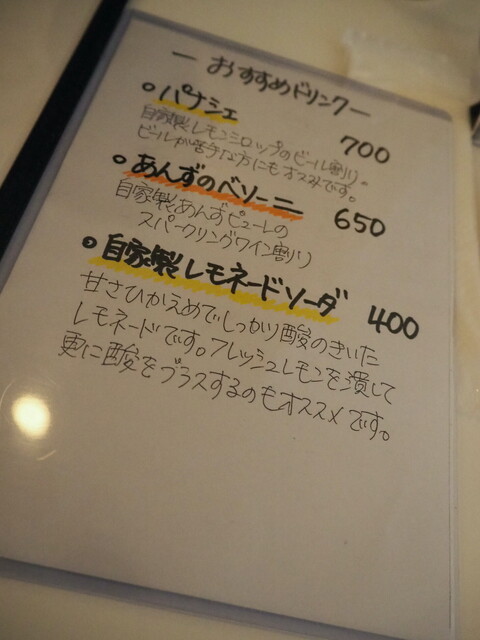 ー おすすめドリンク ー
○ パナシェ 700
自家製レモンシロップのビール割り。
ビールが苦手な方にもオススメです。
○ あんずのベリーニ 650
自家製あんずピューレの
スパークリングワイン割り
○ 自家製レモネードソーダ 400
甘さひかえめでしっかり酸のきいた
レモネードです。フレッシュレモンを潰して
更に酸をプラスするのもオススメです。